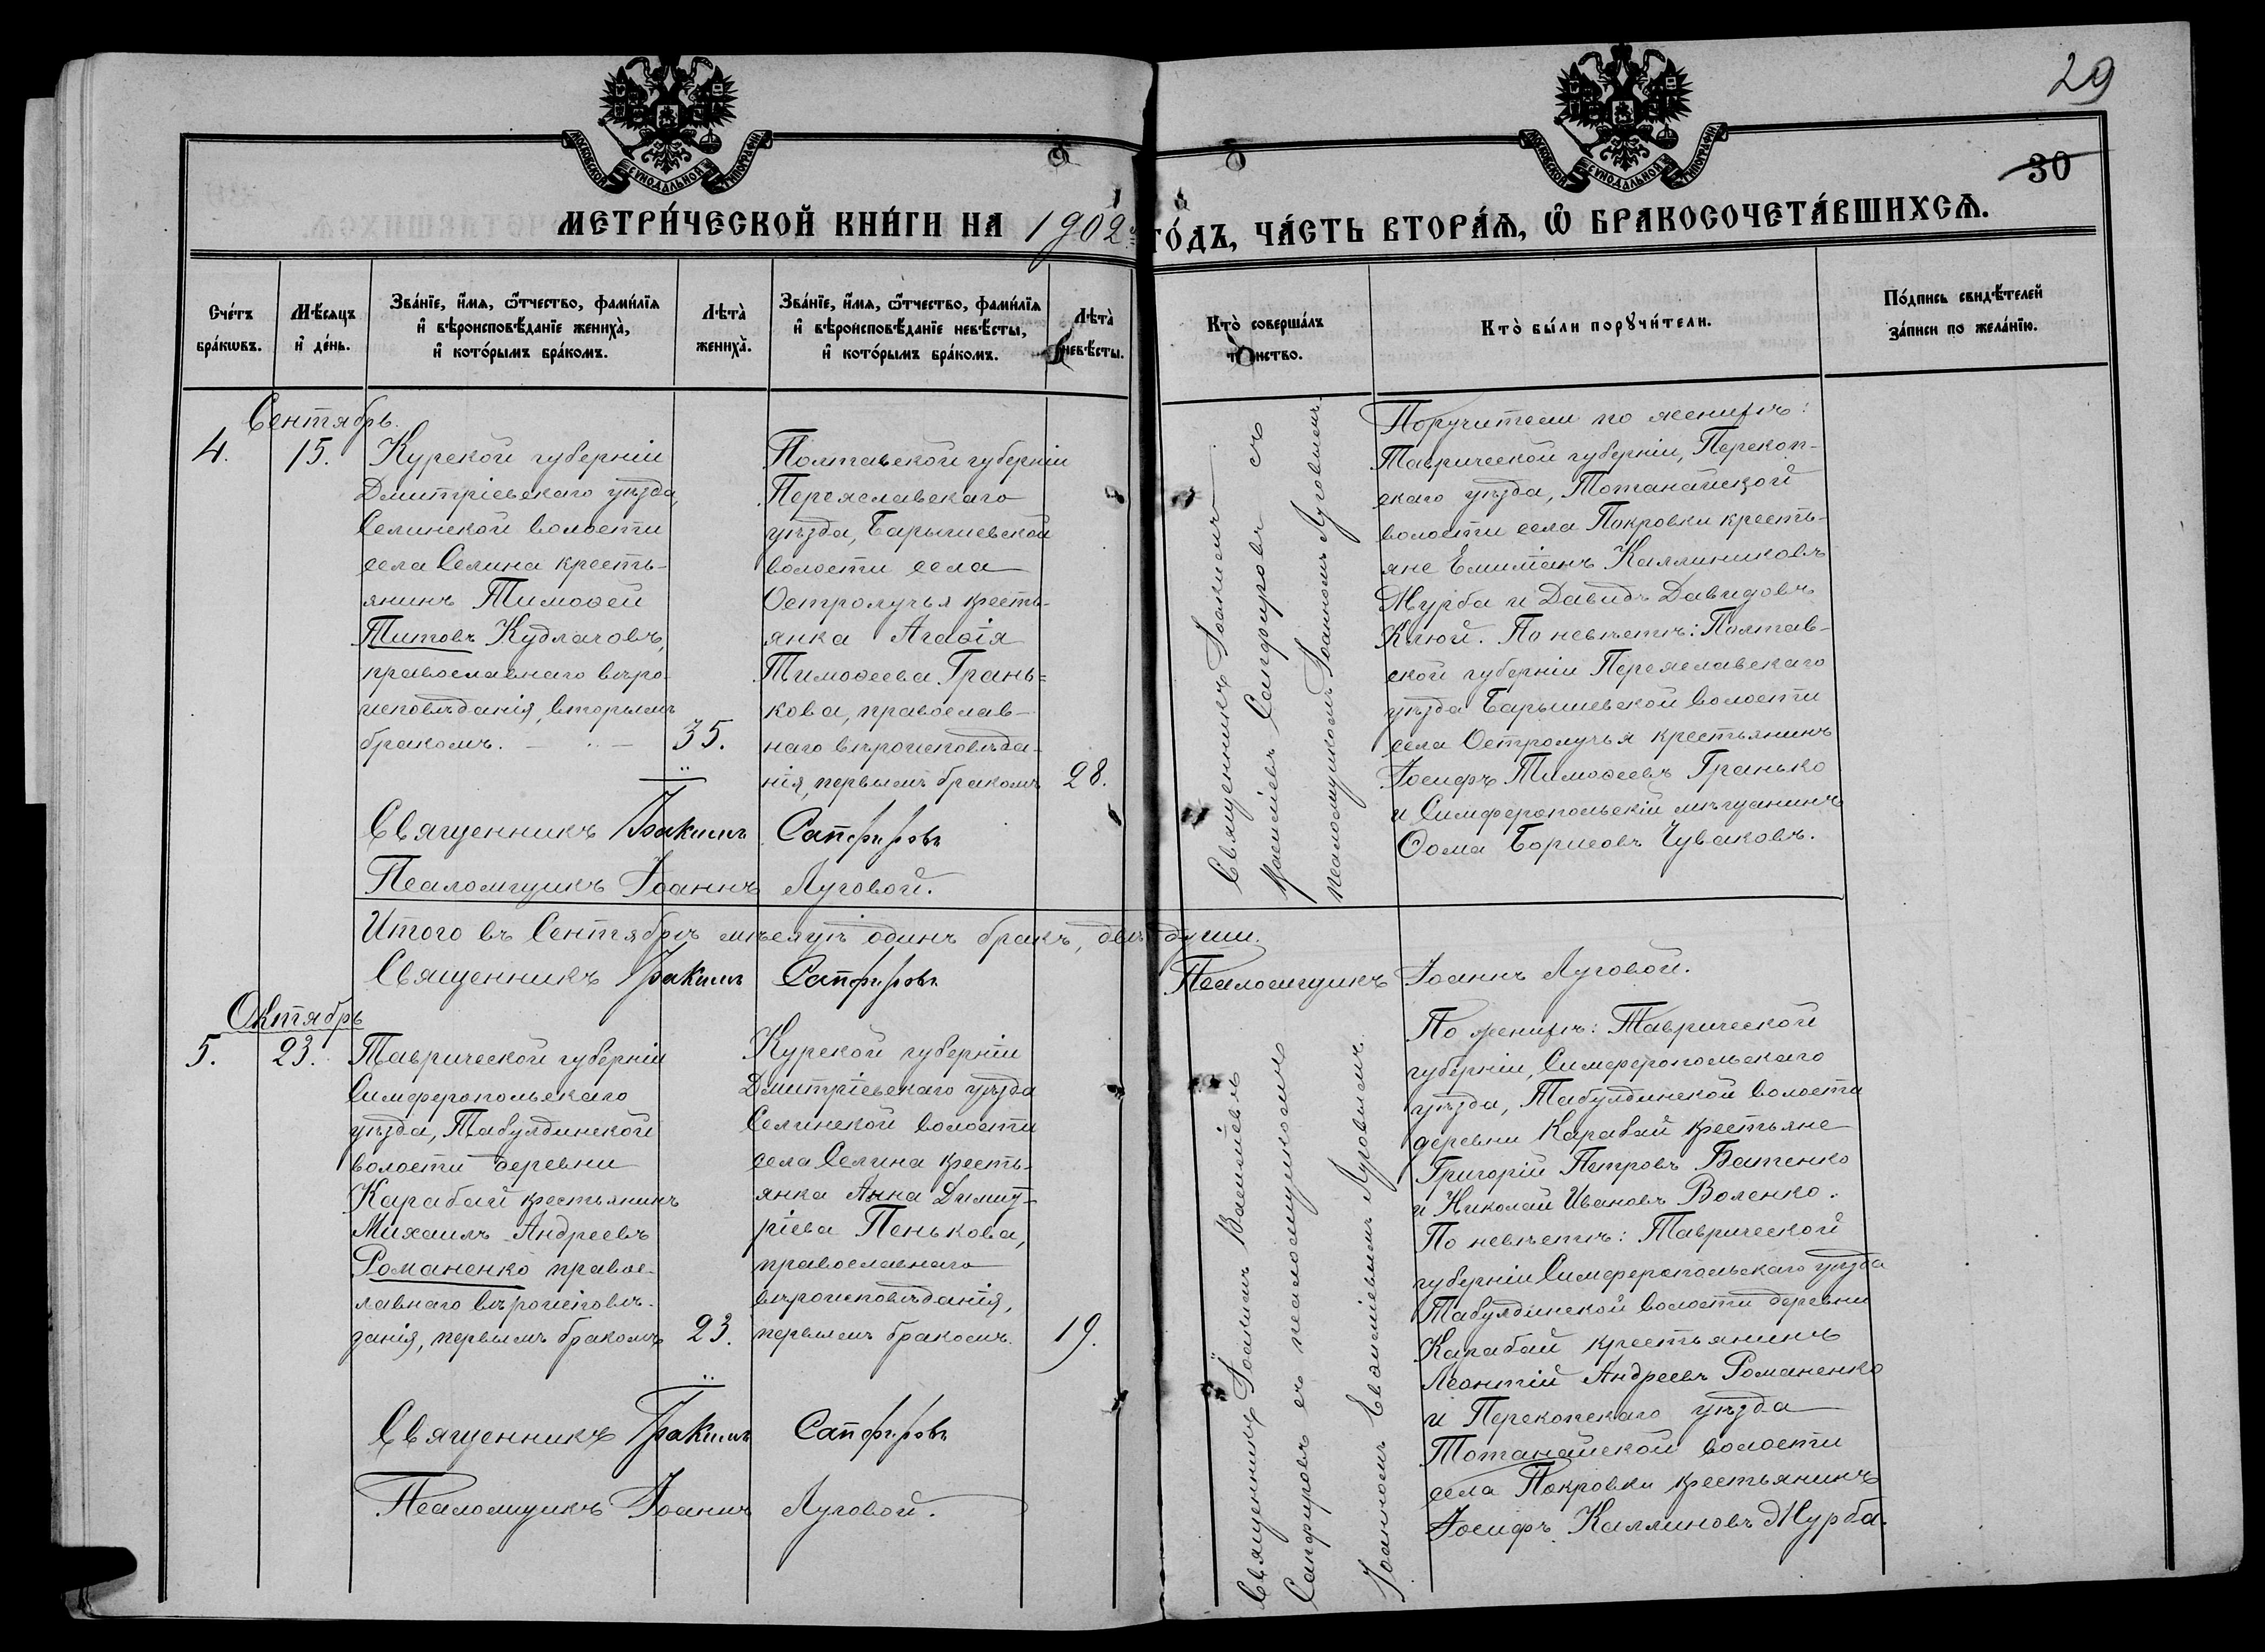 29
30
МОСКОВСКОЙ СѴНОДАЛЬНОЙ ТИПОГРАФІИ
МОСКОВСКОЙ СѴНОДАЛЬНОЙ ТИПОГРАФІИ
МЕТРИ́ЧЕСКОЙ КНИ́ГИ НА 1902 ГО́ДЪ, ЧА́СТЬ ВТОРА́Ѧ, Ѡ҆ БРАКОСОЧЕТА́ВШИХСѦ.
Сче́тъ
бра́кѡвъ.
Мѣ́сѧцъ
и҆ де́нь.
Зва́нїе, и҆́мѧ, ѻ҆́тчество, фами́лїѧ
и҆ вѣроисповѣ́данїе жениха̀,
и҆ кото́рымъ бра́комъ.
Лѣта̀
жениха̀.
Зва́нїе, и҆́мѧ, ѻ҆́тчество, фами́лїѧ
и҆ вѣроисповѣ́данїе невѣ́сты,
и҆ кото́рымъ бра́комъ.
Лѣта̀
невѣ́сты.
Кто̀ соверша́лъ
таинство.
Кто̀ бы́ли порꙋчи́тели.
По́дпись свидѣ́телей
за́писи по жела́нїю.
Сентябрь.
4.
15.
Курской губерніи
Дмитріевскаго уѣзда,
Селинской волости
села Селина кресть-
янинъ Тимоѳей
Титовъ Кудлаговъ,
православнаго вѣро-
исповѣданія, вторымъ
бракомъ.
35.
Полтавской губерніи
Переяславскаго
уѣзда, Барышевской
волости села
Остролучья кресть-
янка Агаѳія
Тимоѳеева Грань=
кова, православ-
наго вѣроисповѣда-
нія, первымъ бракомъ
28.
Священникъ Іоакимъ Сапфировъ
Псаломщикъ Іоаннъ Луговой.
Священникъ Іоакимъ
Василіевъ Сапфировъ съ
псаломщикомъ Іоанномъ Луговымъ.
Поручители по женихѣ:
Таврической губерніи, Перекоп-
скаго уѣзда, Тотанайской
волости села Покровки кресть-
яне Емиліанъ Каллиниковъ
Мурба и Давидъ Давидовъ
Клюй. По невѣстѣ: Полтав-
ской губерніи Переяславскаго
уѣзда Барышевской волости
села Остролучья крестьянинъ
Іосифъ Тимоѳеевъ Гранько
и Симферопольскій мѣщанинъ
Ѳома Борисовъ Чуваковъ.
Итого въ Сентябрѣ мѣсяцѣ одинъ бракъ, двѣ души.
Священникъ Іоакимъ Сапфировъ Псаломщикъ Іоаннъ Луговой.
Октябрь
5.
23.
Таврической губерніи
Симферопольскаго
уѣзда, Табулдинской
волости деревни
Карабай крестьянинъ
Михаилъ Андреевъ
Романенко правос-
лавнаго вѣроисповѣ-
данія, первымъ бракомъ
23.
Курской губерніи
Дмитріевскаго уѣзда
Селинской волости
села Селина кресть-
янка Анна Димит-
ріева Пенькова,
православнаго
вѣроисповѣданія,
первымъ бракомъ.
19.
Священникъ Іоакимъ Сапфировъ
Псаломщикъ Іоаннъ Луговой.
Священникъ Іоакимъ Василіевъ
Сапфировъ съ псаломщикомъ
Іоанномъ Евѳиміевымъ Луговымъ.
По женихѣ: Таврической
губерніи, Симферопольскаго
уѣзда, Табулдинской волости
деревни Карабай крестьяне
Григорій Петровъ Батенко
и Николай Ивановъ Воленко.
По невѣстѣ: Таврической
губерніи Симферопольскаго уѣзда
Табулдинской волости деревни
Карабай крестьянинъ
Леонтій Андреевъ Романенко
и Перекопскаго уѣзда
Тотанайской волости
села Покровки крестьянинъ
Іосифъ Каллиновъ Мурба.